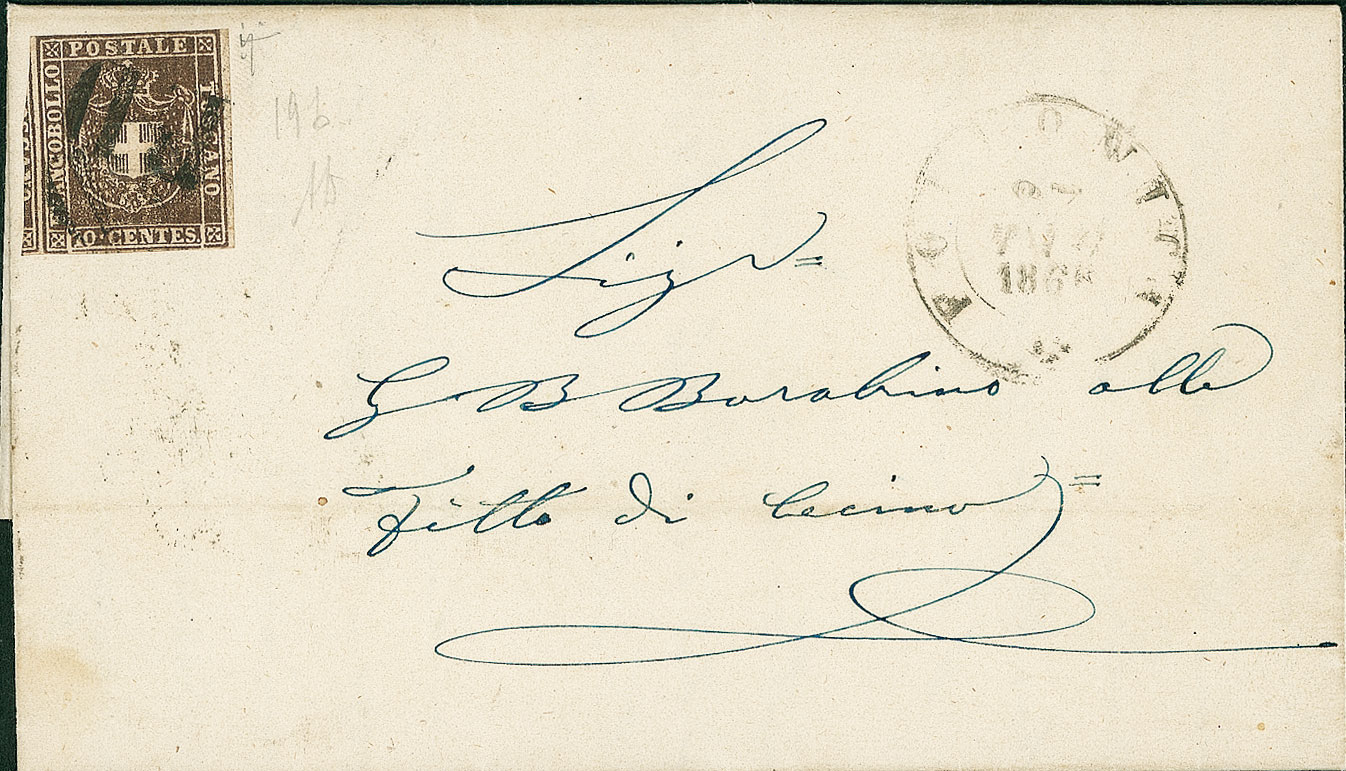 POSTALE
FRANCOBOLLO
TOSCANO
10 CENTES
19b
Sigr =
G B Barabino alle
Fitto di Cecina =
18